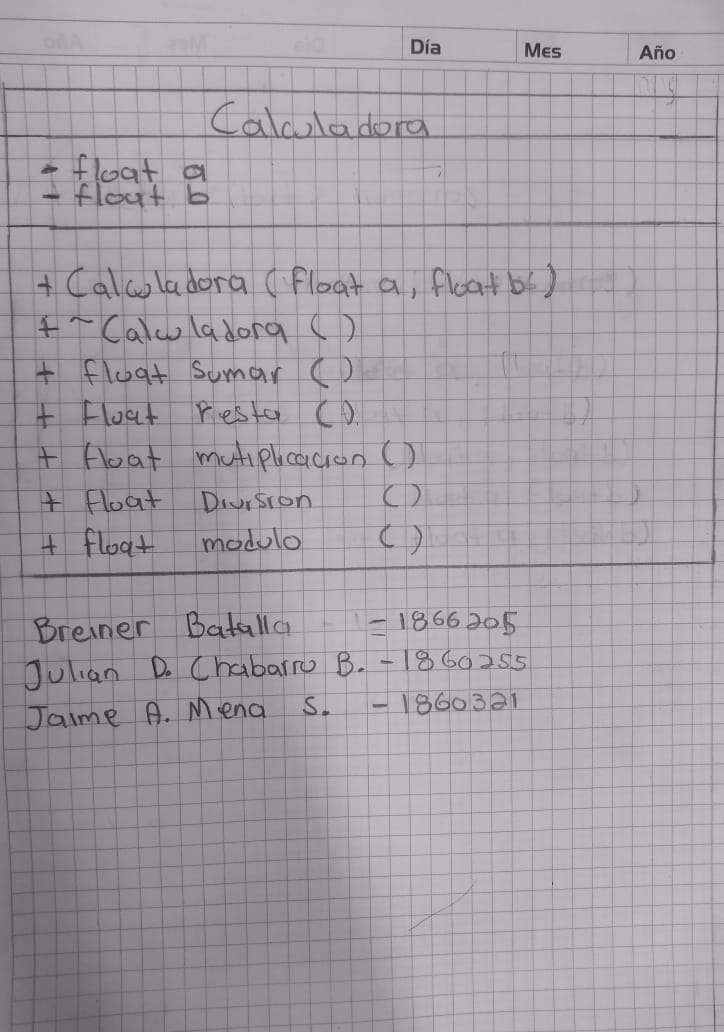 Día Mes Año
Calculadora
- float a
- float b
+ Calculadora (float a, float b)
+ ~ Calculadora ()
+ float sumar ()
+ float resta ()
+ float mutiplicacion ()
+ float Division ()
+ float modulo ()
Breiner Batalla = 1866205
Julian D. Chabarro B. - 1860255
Jaime A. Mena S. - 1860321